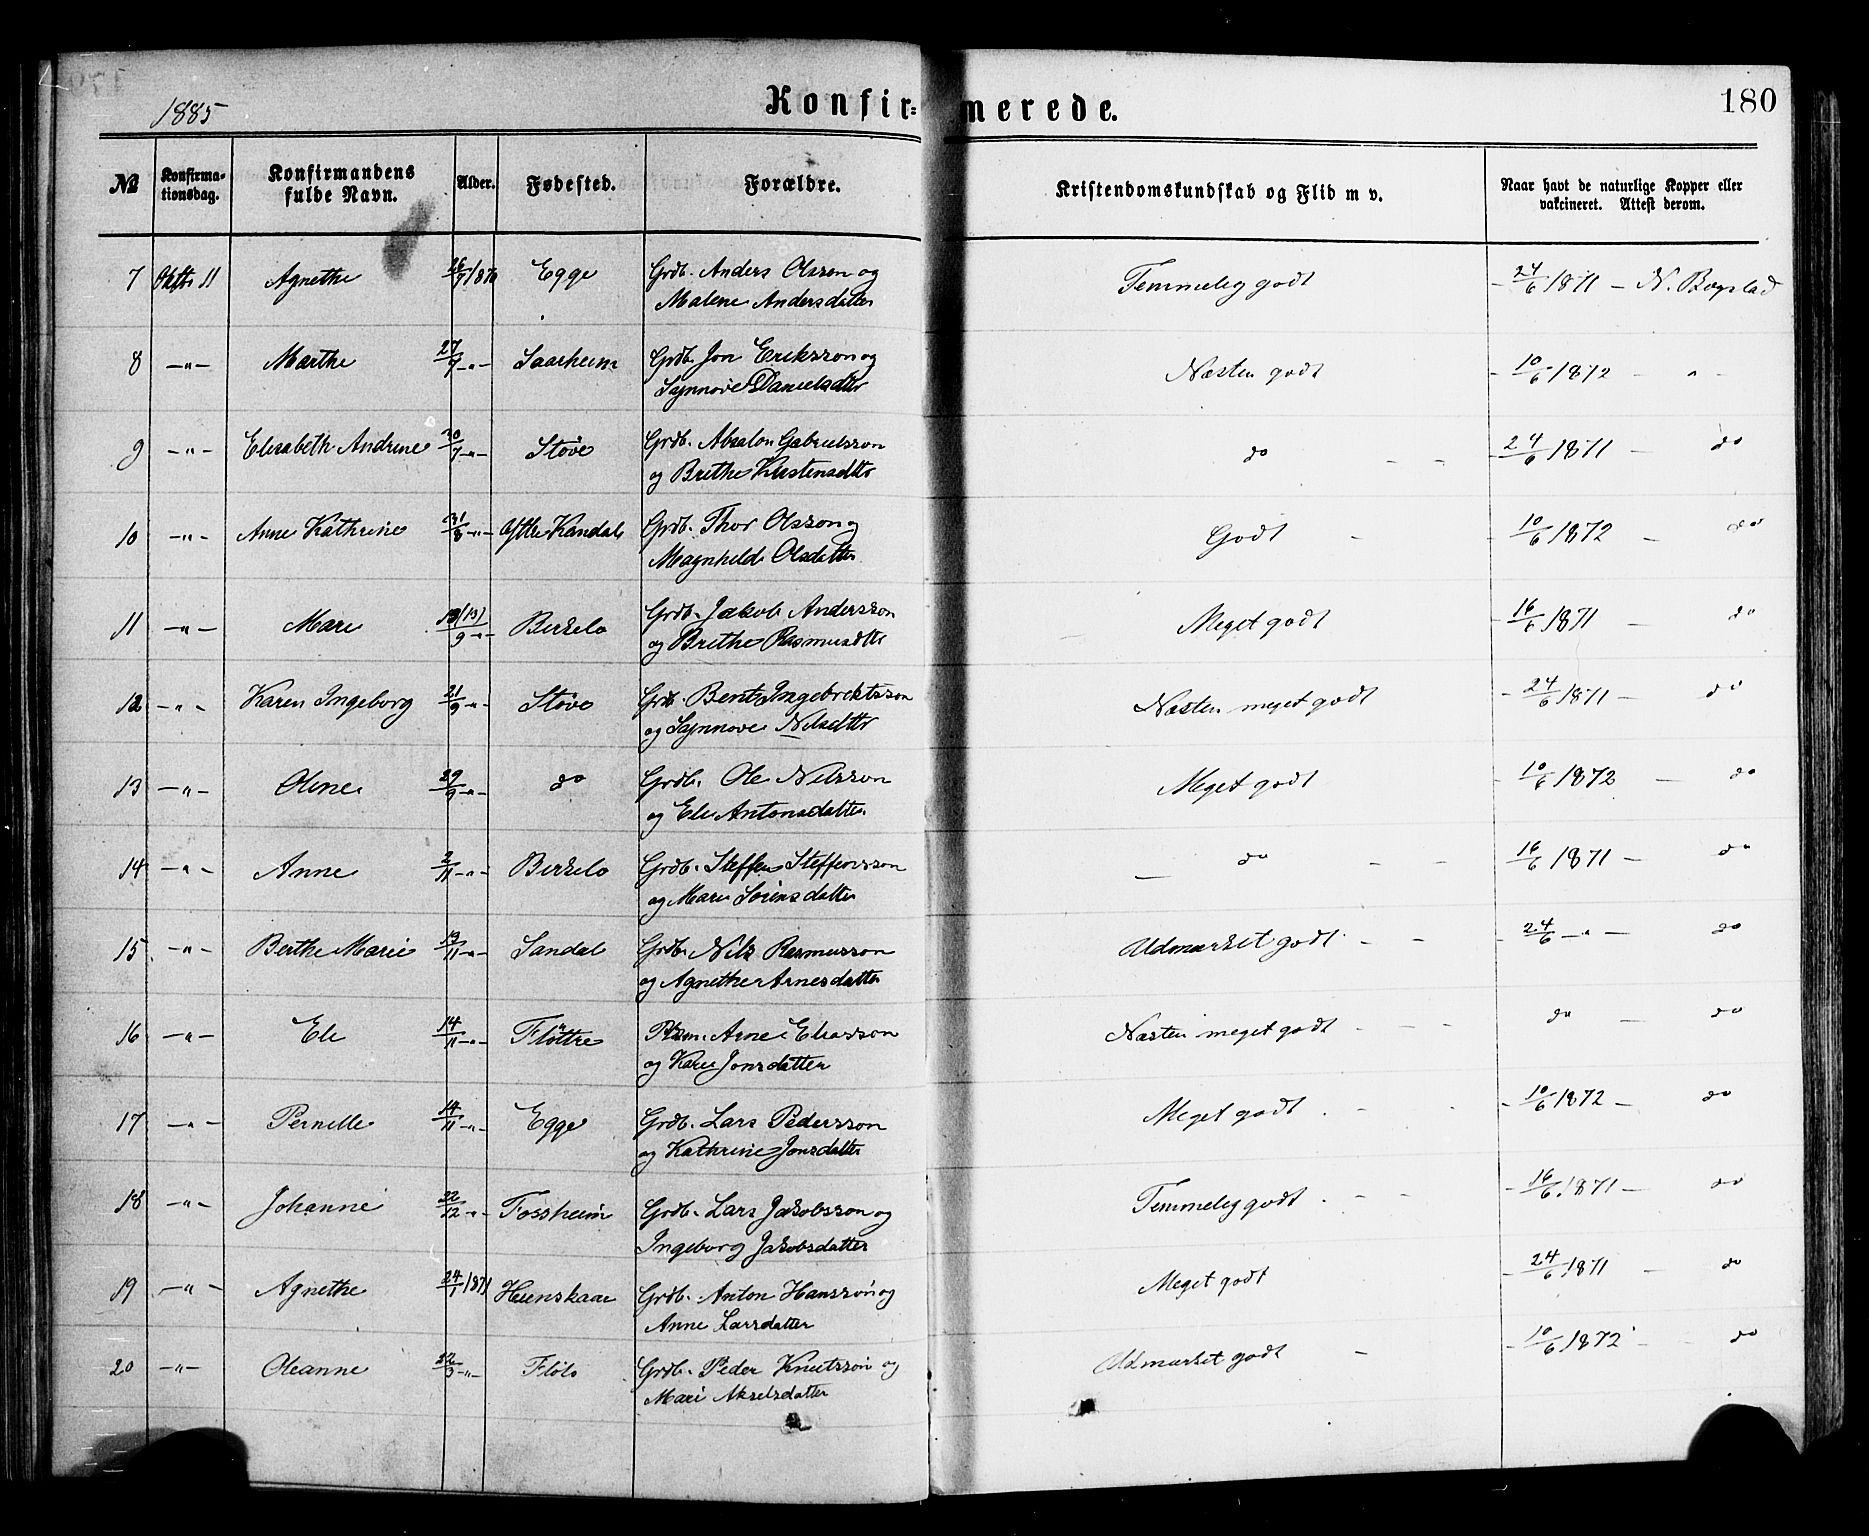 1885
Konfir=merede.
180
№ Konfirma-tionsdag. Konfirmandens fulde Navn. Alder. Fødested. Forældre. Kristendomskundskab og Flid m v. Naar havt de naturlige Kopper eller vakcineret. Attest derom.
7 Oktb. 11 Agnethe 26/7 1870 Egge Grdb. Anders Olsson og Temmelig godt - 24/6 1871 - N. Bøgstad
Malene Andersdatter
8 -"- Marthe 27/7 -"- Saarheim Grdb. Jon Eriksson og Næsten godt - 10/6 1872 - " -
Synnøve Danielsdtter
9 -"- Elisabeth Andrine 30/7 -"- Støve Grdb. Absalon Gabrielsson do - - - 24/6 1871 - do
og Brithe Kristensdtter
10 -"- Anne Kathrine 31/8 -"- Ytre Kandal Grdb. Thor Olsson og Godt - - 10/6 1872 - do
Magnhild Olsdatter
11 -"- Mari 19(13)/9 -"- Birkelo Grdb. Jakob Andersson Meget godt - 16/6 1871 - do
og Brithe Rasmusdtter
12 -"- Karen Ingeborg 21/9 -"- Støve Grdb. Bent Ingebrektsson Næsten meget godt - 24/6 1871 - do
og Synnøve Nilsdtter
13 -"- Oline 29/9 -"- do Grdb. Ole Nilsson Meget godt - 10/6 1872 - do
og Eli Antonsdatter
14 -"- Anne 2/11 -"- Birkelo Grdb. Steffen Steffensson - do - - 16/6 1871 - do
og Mari Sørensdatter
15 -"- Berthe Marie 13/11 -"- Sandal Grdb. Nils Rasmusson Udmærket godt - - - 24/6 -"- do
og Agnethe Arnesdatter
16 -"- Eli 14/11 -"- Fløttre Plsm. Arne Eliasson Næsten meget godt - - - do - do
og Kari Jonsdatter
17 -"- Pernille 14/11 -"- Egge Grdb. Lars Pedersson Meget godt - - - 10/6 1872 - do
og Kathrine Jonsdatter
18 -"- Johanne 22/12 -"- Fossheim Grdb. Lars Jakobsson og Temmelig godt - - - 16/6 1871 - do
Ingeborg Jakobsdatter
19 -"- Agnethe 24/1 1871 Heenskaar Grdb. Anton Hansson og Meget godt - 24/6 1871 do
Anne Larsdatter
20 -"- Oleanne 22/3 -"- Flølo Grdb. Peder Knutsson og Udmærket godt - - 10/6 1872 - do
Mari Akselsdatter